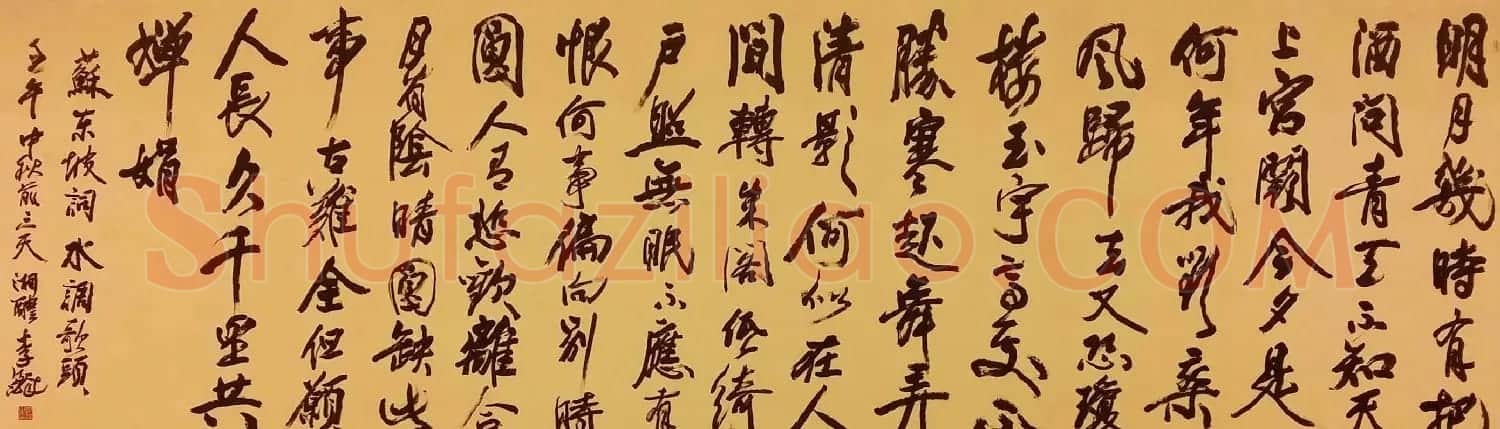 明月幾時有把
酒問青天不知天
上宮闕今夕是
何年我欲乘
風歸去又恐瓊
樓玉宇高處不
勝寒起舞弄
清影何似在人
間轉朱閣低綺
户照無眠不應有
恨何事偏向别時
圓人有悲歡離合
月有陰晴圓缺此
事古難全但願
人長久千里共
嬋娟
蘇東坡詞水調歌頭
壬午中秋前三天湘醴李
Shufaziliao.COM